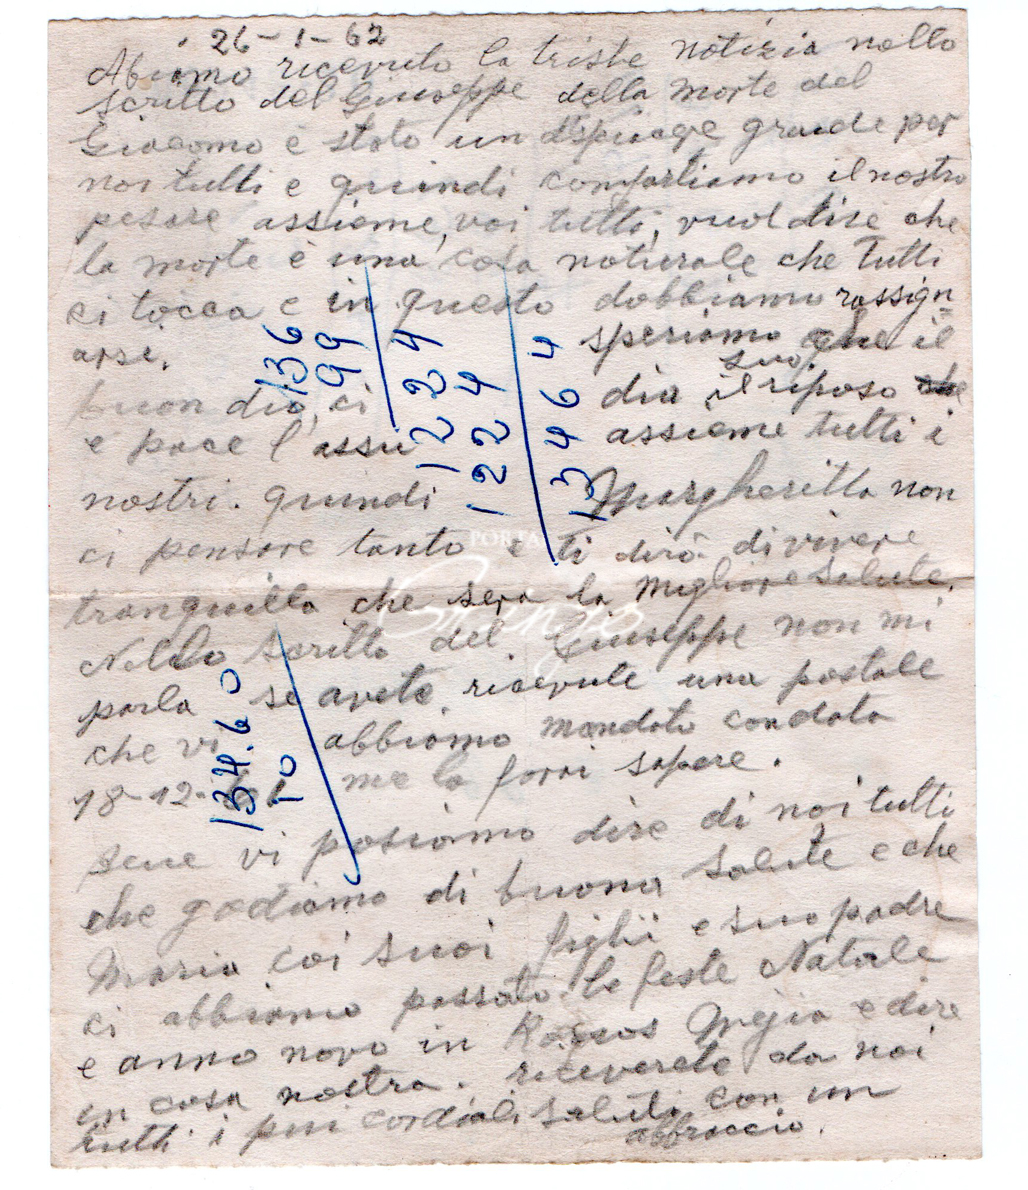 26-1-62
Abiamo ricevuto la triste notizia nello
scritto del Giuseppe della morte del
Giacomo è stato un dispiacere grande per
noi tutti e quindi comfortiamo il nostro
pesare assieme, voi tutti, vuol dire che
la morte è una cosa naturale che tutti
ci tocca e in questo dobbiamo rassign
arsi. speriamo che il
buon dio, ci dia il suo riposo che
e pace l'assu assieme tutti i
nostri. quindi Margheritta non
ci pensare tanto e ti dirò di vivere
tranquilla che sera la migliore salute.
Nello scritto del Giuseppe non mi
parla se avete ricevute una postale
che vi abbiamo mandato condata
18-12- me la farai sapere.
sene vi posiamo dire di noi tutti
che godiamo di buona salute e che
Maria coi suoi figlii e suo padre
ci abbiamo passato le feste Natale
e anno novo in Mejia e dire
in casa nostra. riceverete da noi
tutti i piu cordiali saluti con un
abbraccio.
136
99
1224
1224
13464
134.60
10
PORTA
Stenico